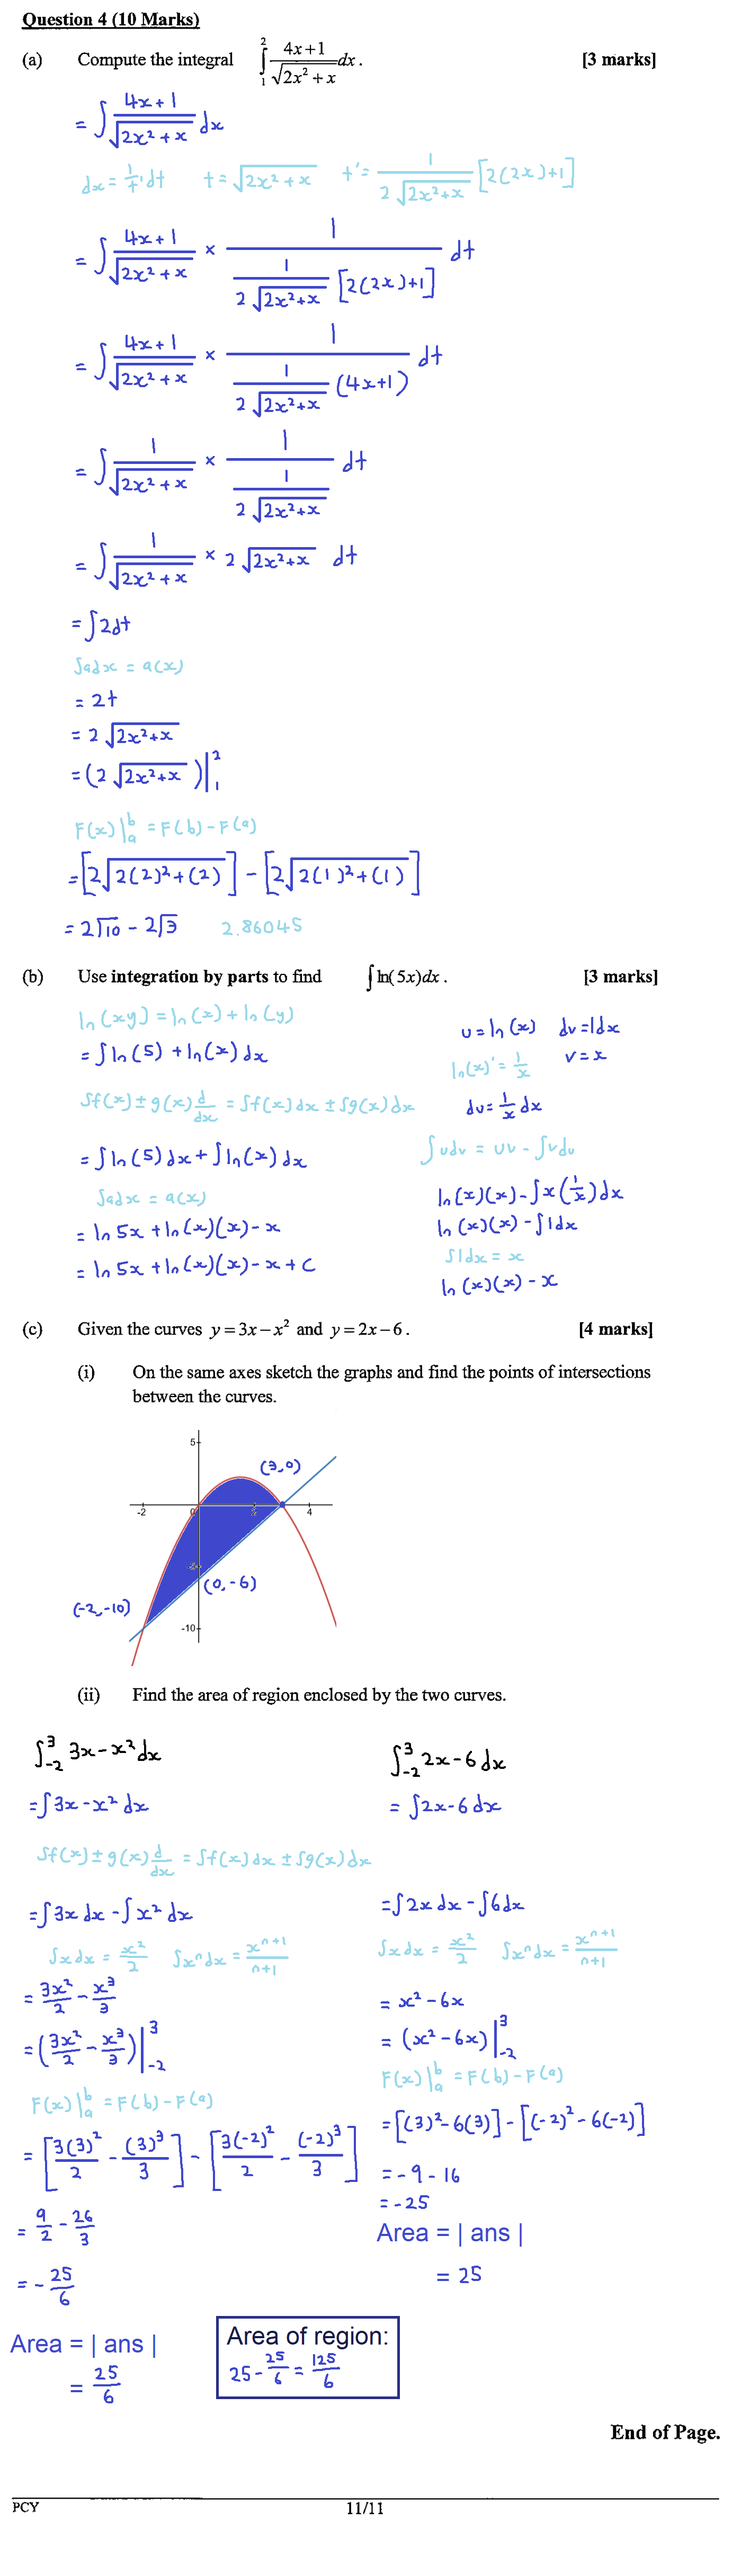 Question 4 (10 Marks)
(a) Compute the integral ∫₁² (4x+1)/√(2x²+x) dx. [3 marks]
= ∫ (4x+1)/√(2x²+x) dx
dx = 1/t' dt t = √(2x²+x) t' = 1/(2√(2x²+x)) [2(2x)+1]
= ∫ (4x+1)/√(2x²+x) × 1/(1/(2√(2x²+x)) [2(2x)+1]) dt
= ∫ (4x+1)/√(2x²+x) × 1/(1/(2√(2x²+x)) (4x+1)) dt
= ∫ 1/√(2x²+x) × 1/(1/(2√(2x²+x))) dt
= ∫ 1/√(2x²+x) × 2√(2x²+x) dt
= ∫2dt
∫adx = a(x)
= 2t
= 2√(2x²+x)
= (2√(2x²+x))|₁²
F(x)|ₐᵇ = F(b) - F(a)
= [2√(2(2)²+(2))] - [2√(2(1)²+(1))]
= 2√10 - 2√3 2.86045
(b) Use integration by parts to find ∫ln(5x)dx. [3 marks]
ln(xy) = ln(x) + ln(y)
= ∫ln(5) + ln(x) dx
∫f(x) ± g(x) d/dx = ∫f(x)dx ± ∫g(x)dx
= ∫ln(5)dx + ∫ln(x)dx
∫adx = a(x)
= ln5x + ln(x)(x) - x
= ln5x + ln(x)(x) - x + C
u = ln(x) dv = 1dx
ln(x)' = 1/x v = x
du = 1/x dx
∫udv = uv - ∫vdu
ln(x)(x) - ∫x(1/x)dx
ln(x)(x) - ∫1dx
∫1dx = x
ln(x)(x) - x
(c) Given the curves y = 3x - x² and y = 2x - 6. [4 marks]
(i) On the same axes sketch the graphs and find the points of intersections
between the curves.
5
(3,0)
-2 0 2 4
-5
(0,-6)
(-2,-10)
-10
(ii) Find the area of region enclosed by the two curves.
∫₋₂³ 3x - x² dx
= ∫3x - x² dx
∫f(x) ± g(x) d/dx = ∫f(x)dx ± ∫g(x)dx
= ∫3x dx - ∫x² dx
∫xdx = x²/2 ∫xⁿdx = xⁿ⁺¹/(n+1)
= 3x²/2 - x³/3
= (3x²/2 - x³/3)|₋₂³
F(x)|ₐᵇ = F(b) - F(a)
= [3(3)²/2 - (3)³/3] - [3(-2)²/2 - (-2)³/3]
= 9/2 - 26/3
= - 25/6
Area = | ans |
= 25/6
∫₋₂³ 2x - 6 dx
= ∫2x - 6 dx
= ∫2x dx - ∫6dx
∫xdx = x²/2 ∫xⁿdx = xⁿ⁺¹/(n+1)
= x² - 6x
= (x² - 6x)|₋₂³
F(x)|ₐᵇ = F(b) - F(a)
= [(3)² - 6(3)] - [(-2)² - 6(-2)]
= -9 - 16
= -25
Area = | ans |
= 25
Area of region:
25 - 25/6 = 125/6
End of Page.
PCY 11/11